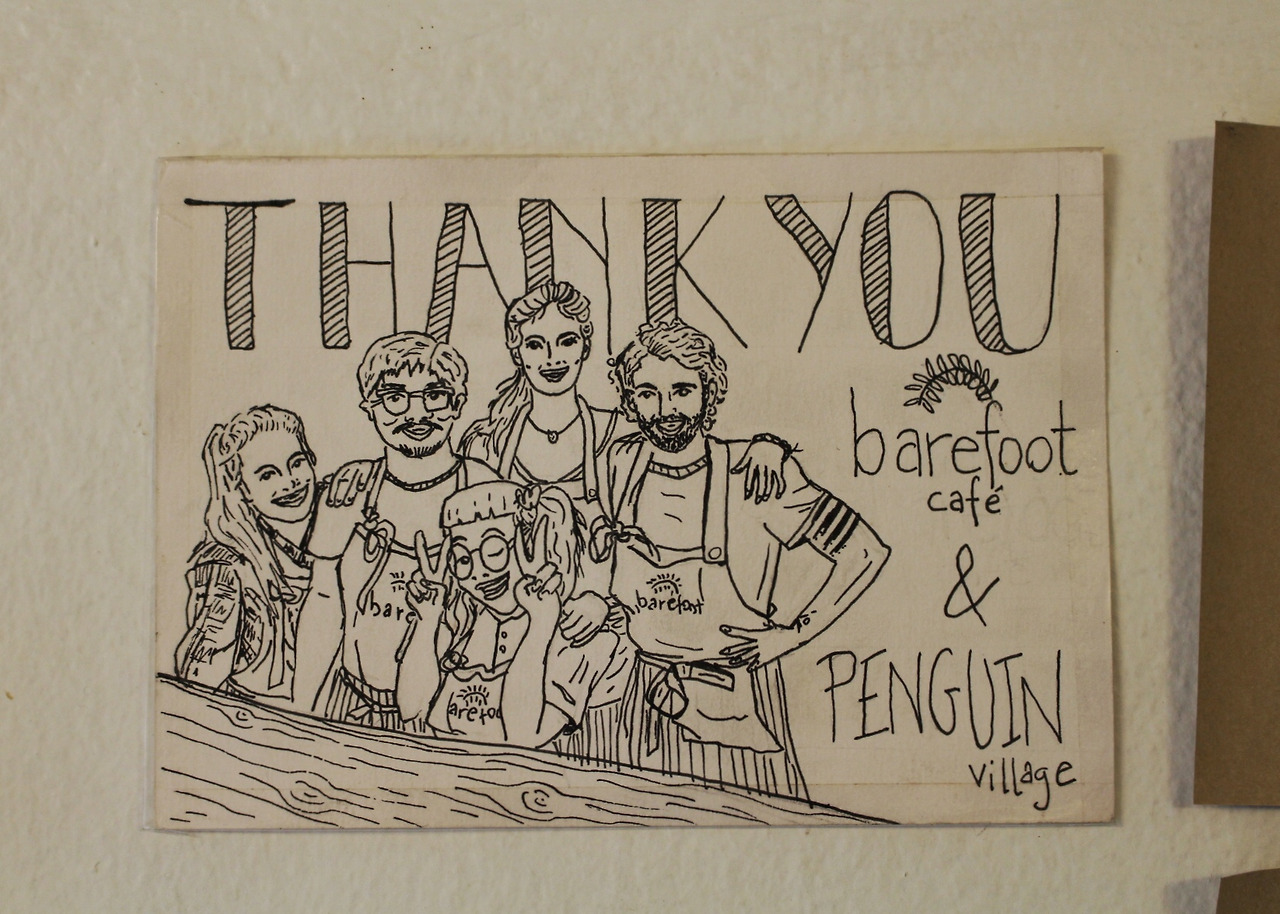 THANK YOU
barefoot
café
&
PENGUIN
village
bare
barefoot
arefoo